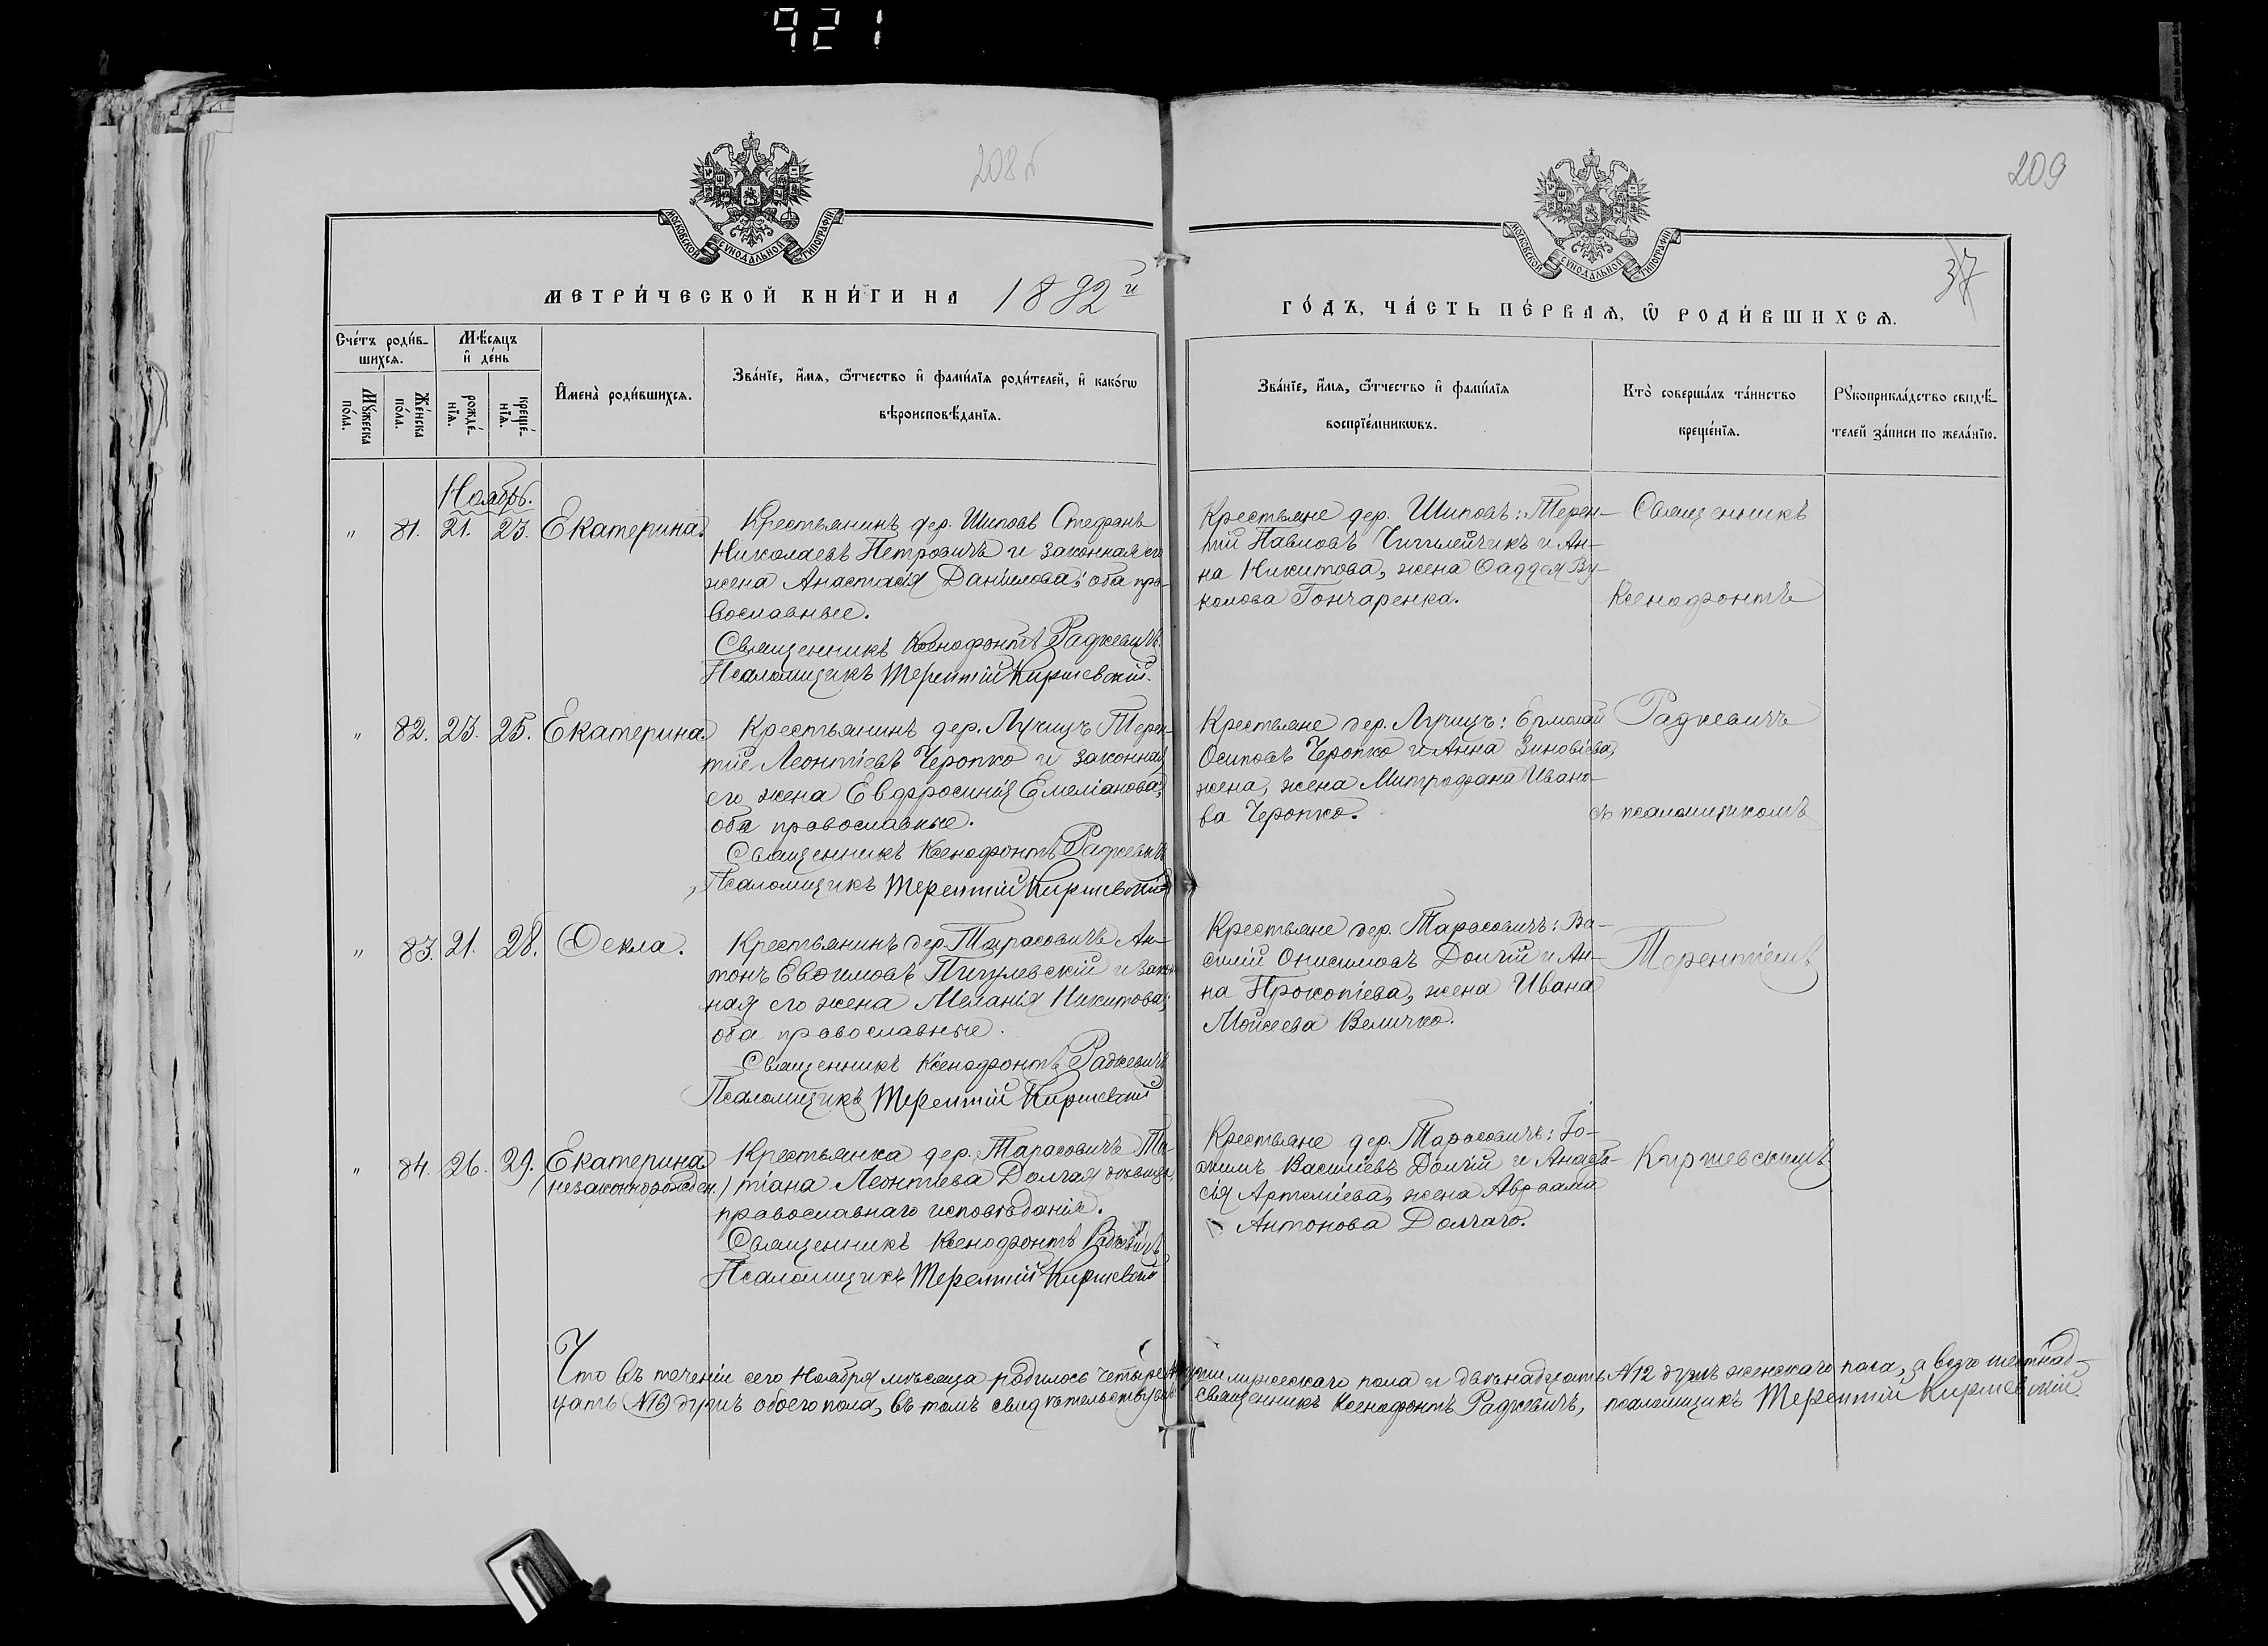 921
208б
209
37
МОСКОВСКОЙ СѴНОДАЛЬНОЙ ТИПОГРАФІИ
МОСКОВСКОЙ СѴНОДАЛЬНОЙ ТИПОГРАФІИ
МЕТРИ́ЧЕСКОЙ КНИ́ГИ НА 1892й
ГО́ДЪ, ЧА́СТЬ ПЕ́РВАѦ, Ѿ РОДИ́ВШИХСѦ.
Сче́тъ роди́в-
шихсѧ.
Мꙋ́жеска по́ла.
Же́нска по́ла.
Мѣ́сѧцъ и҆ де́нь
рожде́-нїѧ.
креще́-нїѧ.
И҆мена̀ роди́вшихсѧ.
Зва́нїе, и҆́мѧ, ѻ҆́тчество и҆ фами́лїѧ роди́телей, и҆ како́гѡ
вѣроисповѣ́данїѧ.
Зва́нїе, и҆́мѧ, ѻ҆́тчество и҆ фами́лїѧ
воспрїе́мникѡвъ.
Кто̀ соверша́лъ та́инство
креще́нїѧ.
Рꙋкоприкла́дство свидѣ́-
телей за́писи по жела́нїю.
Ноябрь.
" 81. 21. 23. Екатерина.
Крестьянинъ дер. Шиповъ Стефанъ
Николаевъ Петровичъ и законная его
жена Анастасія Даніилова; оба пра-
вославные.
Священникъ Ксенофонтъ Радкевичъ
Псаломщикъ Терентій Киркевскій.
Крестьяне дер. Шиповъ: Терен-
тій Павловъ и Ан-
на Никитова, жена Фаддея Ву-
колова Гончаренка.
Священникъ
Ксенофонтъ
" 82. 23. 25. Екатерина.
Крестьянинъ дер. Лучицъ Терен-
тій Леонтіевъ Черопко и законная
его жена Евфросинія Емеліанова;
оба православные.
Священникъ Ксенофонтъ Радкевичъ
Псаломщикъ Терентій Киркевскій
Крестьяне дер. Лучицъ: Ермолай
Осиповъ Черопко и Анна Зиновіева,
жена, жена Митрофана Ивано-
ва Черопко.
Радкевичъ
съ псаломщикомъ
" 83. 21. 28. Ѳекла.
Крестьянинъ дер. Тарасовичъ Ан-
тонъ Евфимовъ Пигулевскій и закон-
ная его жена Меланія Никитова;
оба православные.
Священникъ Ксенофонтъ Радкевичъ
Псаломщикъ Терентій Киркевскій
Крестьяне дер. Тарасовичъ: Ва-
силій Онисимовъ Долгій и Ан-
на Прокопіева, жена Ивана
Моисеева Величко.
Терентіемъ
" 84. 26. 29. Екатерина
(незаконнорожден.)
Крестьянка дер. Тарасовичъ Та-
тіана Леонтіева Долгая дѣвица,
православнаго исповѣданія.
Священникъ Ксенофонтъ Радкевичъ
Псаломщикъ Терентій Киркевскій
Крестьяне дер. Тарасовичъ: Іо-
акимъ Василіевъ Долгій и Анаста-
сія Артеміева, жена Авраама
Антонова Долгаго.
Киркевскимъ
Что въ теченіи сего Ноября мѣсяца родилось четыре души мужескаго пола и двѣнадцать №12 душъ женскаго пола, а всего шестнад-
цать №16 душъ обоего пола, въ томъ свидѣтельствуемъ священникъ Ксенофонтъ Радкевичъ, псаломщикъ Терентій Киркевскій.